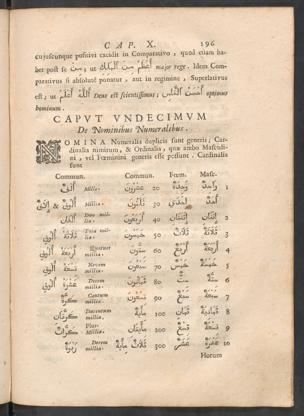 CAP. X. 196
cujuscunque positivi excedit in Comparativo, quod etiam ha-
bet post se مِنْ; ut أَعْظَمُ مِنَ الْمَلِكِ major rege. Idem Com-
parativus si absolutè ponatur, aut in regimine, Superlativus
est; ut اَللّٰهُ أَعْلَمُ Deus est scientissimus; أَحْسَنُ النَّاسِ optimus
hominum.
CAPUT UNDECIMUM
De Nominibus Numeralibus.
NOMINA Numeralia duplicis sunt generis; Car-
dinalia nimirum, & Ordinalia, quæ ambo Masculi-
ni, vel Fœminini generis esse possunt. Cardinalia
sunt
Commun. Commun. Fœm. Masc.
أَلْفٌ Mille. عِشْرُونَ 20 وَاحِدَةٌ وَاحِدٌ 1
Millia. ثَلَاثُونَ 30 إِحْدَى أَحَدٌ
أَلْفَانِ Duo mil-lia. أَرْبَعُونَ 40 اِثْنَتَانِ اِثْنَانِ 2
Tria mil-lia. خَمْسُونَ 50 ثَلَاثٌ ثَلَاثَةٌ 3
Quatuor millia. سِتُّونَ 60 أَرْبَعٌ أَرْبَعَةٌ 4
Novem millia. سَبْعُونَ 70 خَمْسٌ خَمْسَةٌ 5
Decem millia. ثَمَانُونَ 80 سِتٌّ سِتَّةٌ 6
Centum millia. تِسْعُونَ 90 سَبْعٌ سَبْعَةٌ 7
Ducentum millia. 100 8
Plur. Millia. 200 تِسْعٌ تِسْعَةٌ 9
Decem millia. 300 عَشْرٌ عَشَرَةٌ 10
Horum